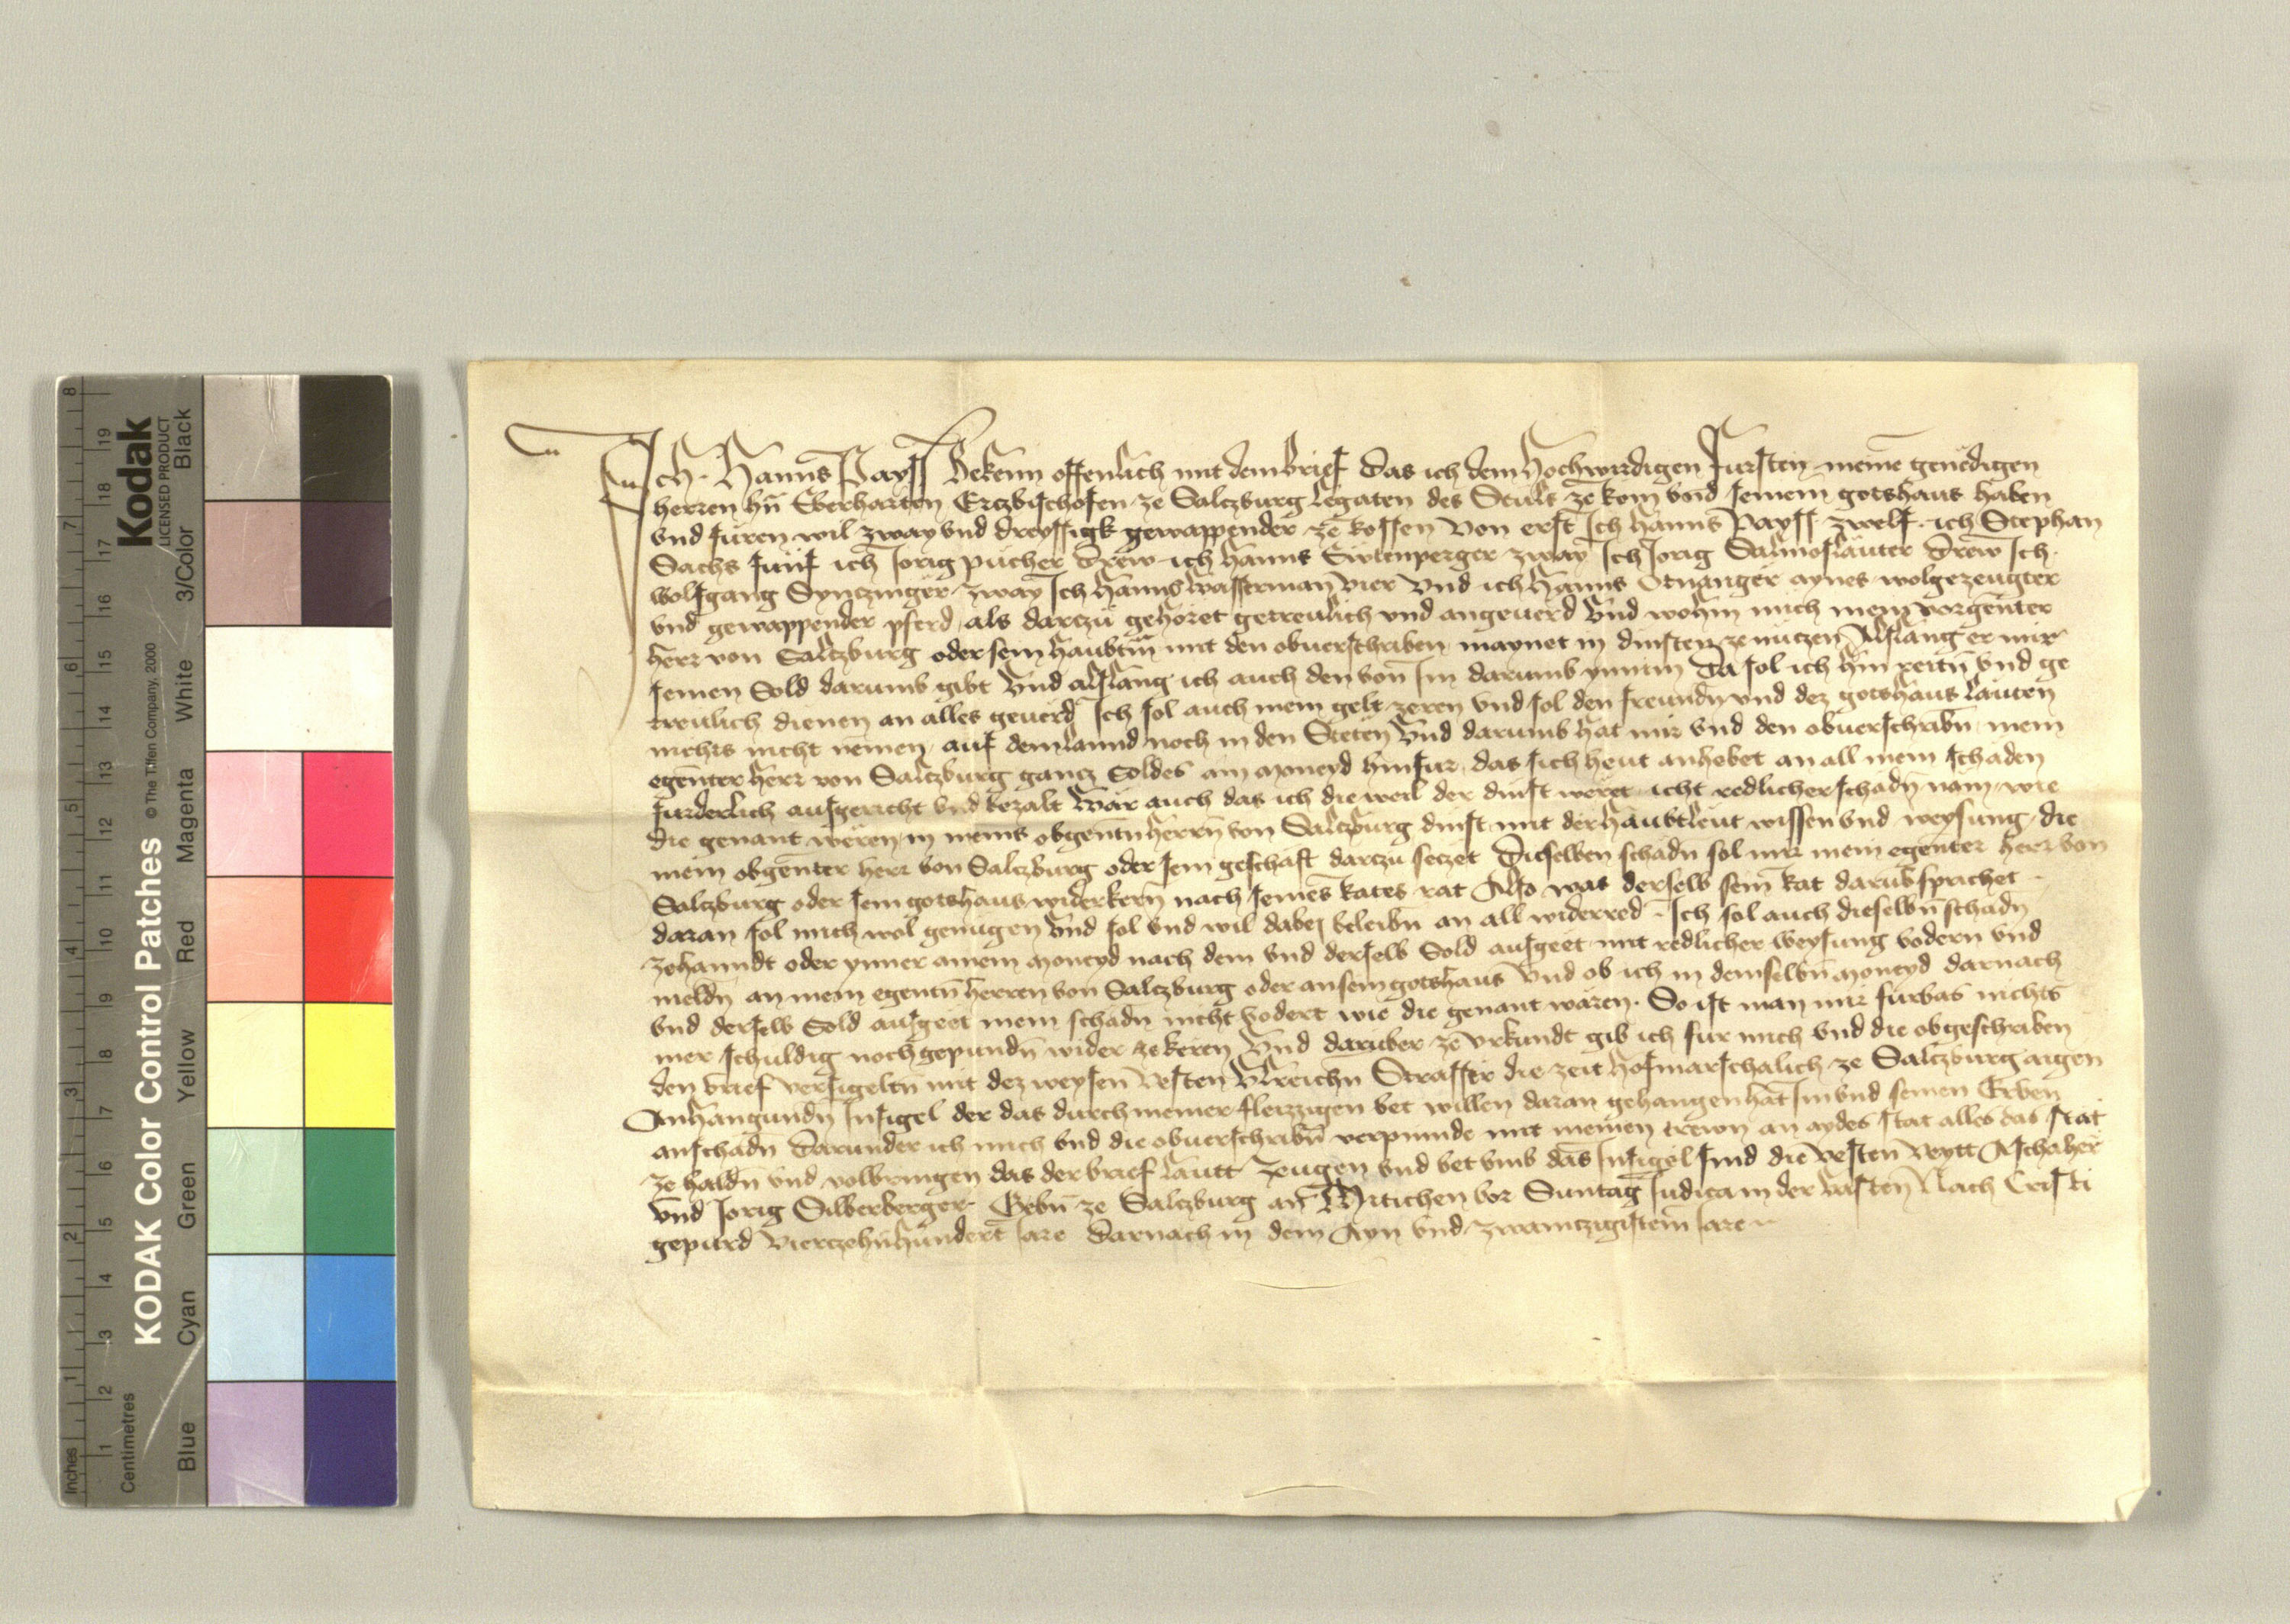 Ich Hanns Payss Bekenn offenlich mit dem brief Das ich dem Hochwirdigen Fursten meinē genedigen
herren hn̄ Eberharten Ertzbischofen ze Salczburg Legaten des Stuls ze Rom vnd seinem gotshaus haben
vnd füren wil zway vnd dreyssigk gewappender ze Rossen von erst Ich Hanns Payss zwelf ich Stephan
Sachs fünf ich Jorig pücher drew ich Hanns zway Ich Jorig drew Ich
wolfgang Synczinger zway Ich Hanns wasserman vier vnd ich Hanns Otnanger aynes wolgezeugter
vnd gewappender pferd als darczü gehöret getreulich vnd angeuerd Vnd wohin mich mein vorgenter
herr von Salczburg oder sein haubtm̄ mit den obuerschriben maynet in dinsten ze nüczen Alslang er mir
seinen Sold darumb gibt Vnd alslang ich auch den von Im darumb ynnim Da sol ich hin reitn̄ vnd ge
treulich dienen an alles geuerd Ich sol auch mein gelt zeren vnd sol den freundn̄ vnd dez gotshaus läuten
nichts nicht nemen auf dem lannd noch in den Steten Vnd darumb hat mir vnd den obuerschribn̄ mein
egenter herr von Salczburg gancz Soldes ain moneyd hinfur das sich heut anhebet an all mein schaden
furderlich ausgericht vnd bezalt Wär auch das ich die weil der dinst weret icht redlicher schadn̄ näm wie
die genant weren in meins obgentn̄ herrn̄ von Salczburg dinst mit der haubtleut wissen vnd weysung die
mein obgenter herr von Salczburg oder sein geschäft darczu seczet Dieselben schadn̄ sol mir mein egenter herr von
Salczburg oder sein gotshaus widerkern̄ nach seines Rates rat Also was derselb sein Rat darub sprichet
daran sol mich wol genügen Vnd sol vnd wil dabey beleibn̄ an all widerred Ich sol auch dieselbn̄ schadn̄
zehanndt oder ynner ainem moneyd nach dem vnd derselb Sold ausgeet mit redlicher weysung vodern vnd
meldn̄ an mein egentn̄ herren von Salczburg oder an sein gotshaus Vnd ob ich in demselbn̄ moneyd darnach
vnd derselb Sold ausgeet mein schadn̄ nicht vodert wie die genant wären. So ist man mir fürbas nichts
mer schuldig noch gepundn̄ wider ze keren Vnd daruber ze vrkundt gib ich fur mich vnd die obgeschriben
den brief versigeltn̄ mit dez weysen vesten Vlreichn̄ Strasser die zeit hofmarschalich ze Salczburg aigen
Anhangundn̄ Insigel der das durch meiner fleizzigen bet willen daran gehangen hat Im vnd seinen Erben
anschadn̄ Darunder ich mich vnd die obuerschribn̄ verpinnde mit meinen trewn an aydes stat alles das stät
ze haldn̄ vnd volbringen das der brief lautt Zeugen vnd bet vmb das Insigel sind die vesten Veytt Aschaher
vnd Jorig Silberberger Gebn̄ ze Salczburg an Mitichen vor Suntag Judica in der vasten Nach Cristi
gepurd Vierczehnhundert Jare Darnach in dem Ayn vnd zwainczigistem Jare
Kodak
LICENSED PRODUCT
KODAK Color Control Patches
© The Tiffen Company, 2000
Blue Cyan Green Yellow Red Magenta White 3/Color Black
Inches 1 2 3 4 5 6 7 8
Centimetres 1 2 3 4 5 6 7 8 9 10 11 12 13 14 15 16 17 18 19